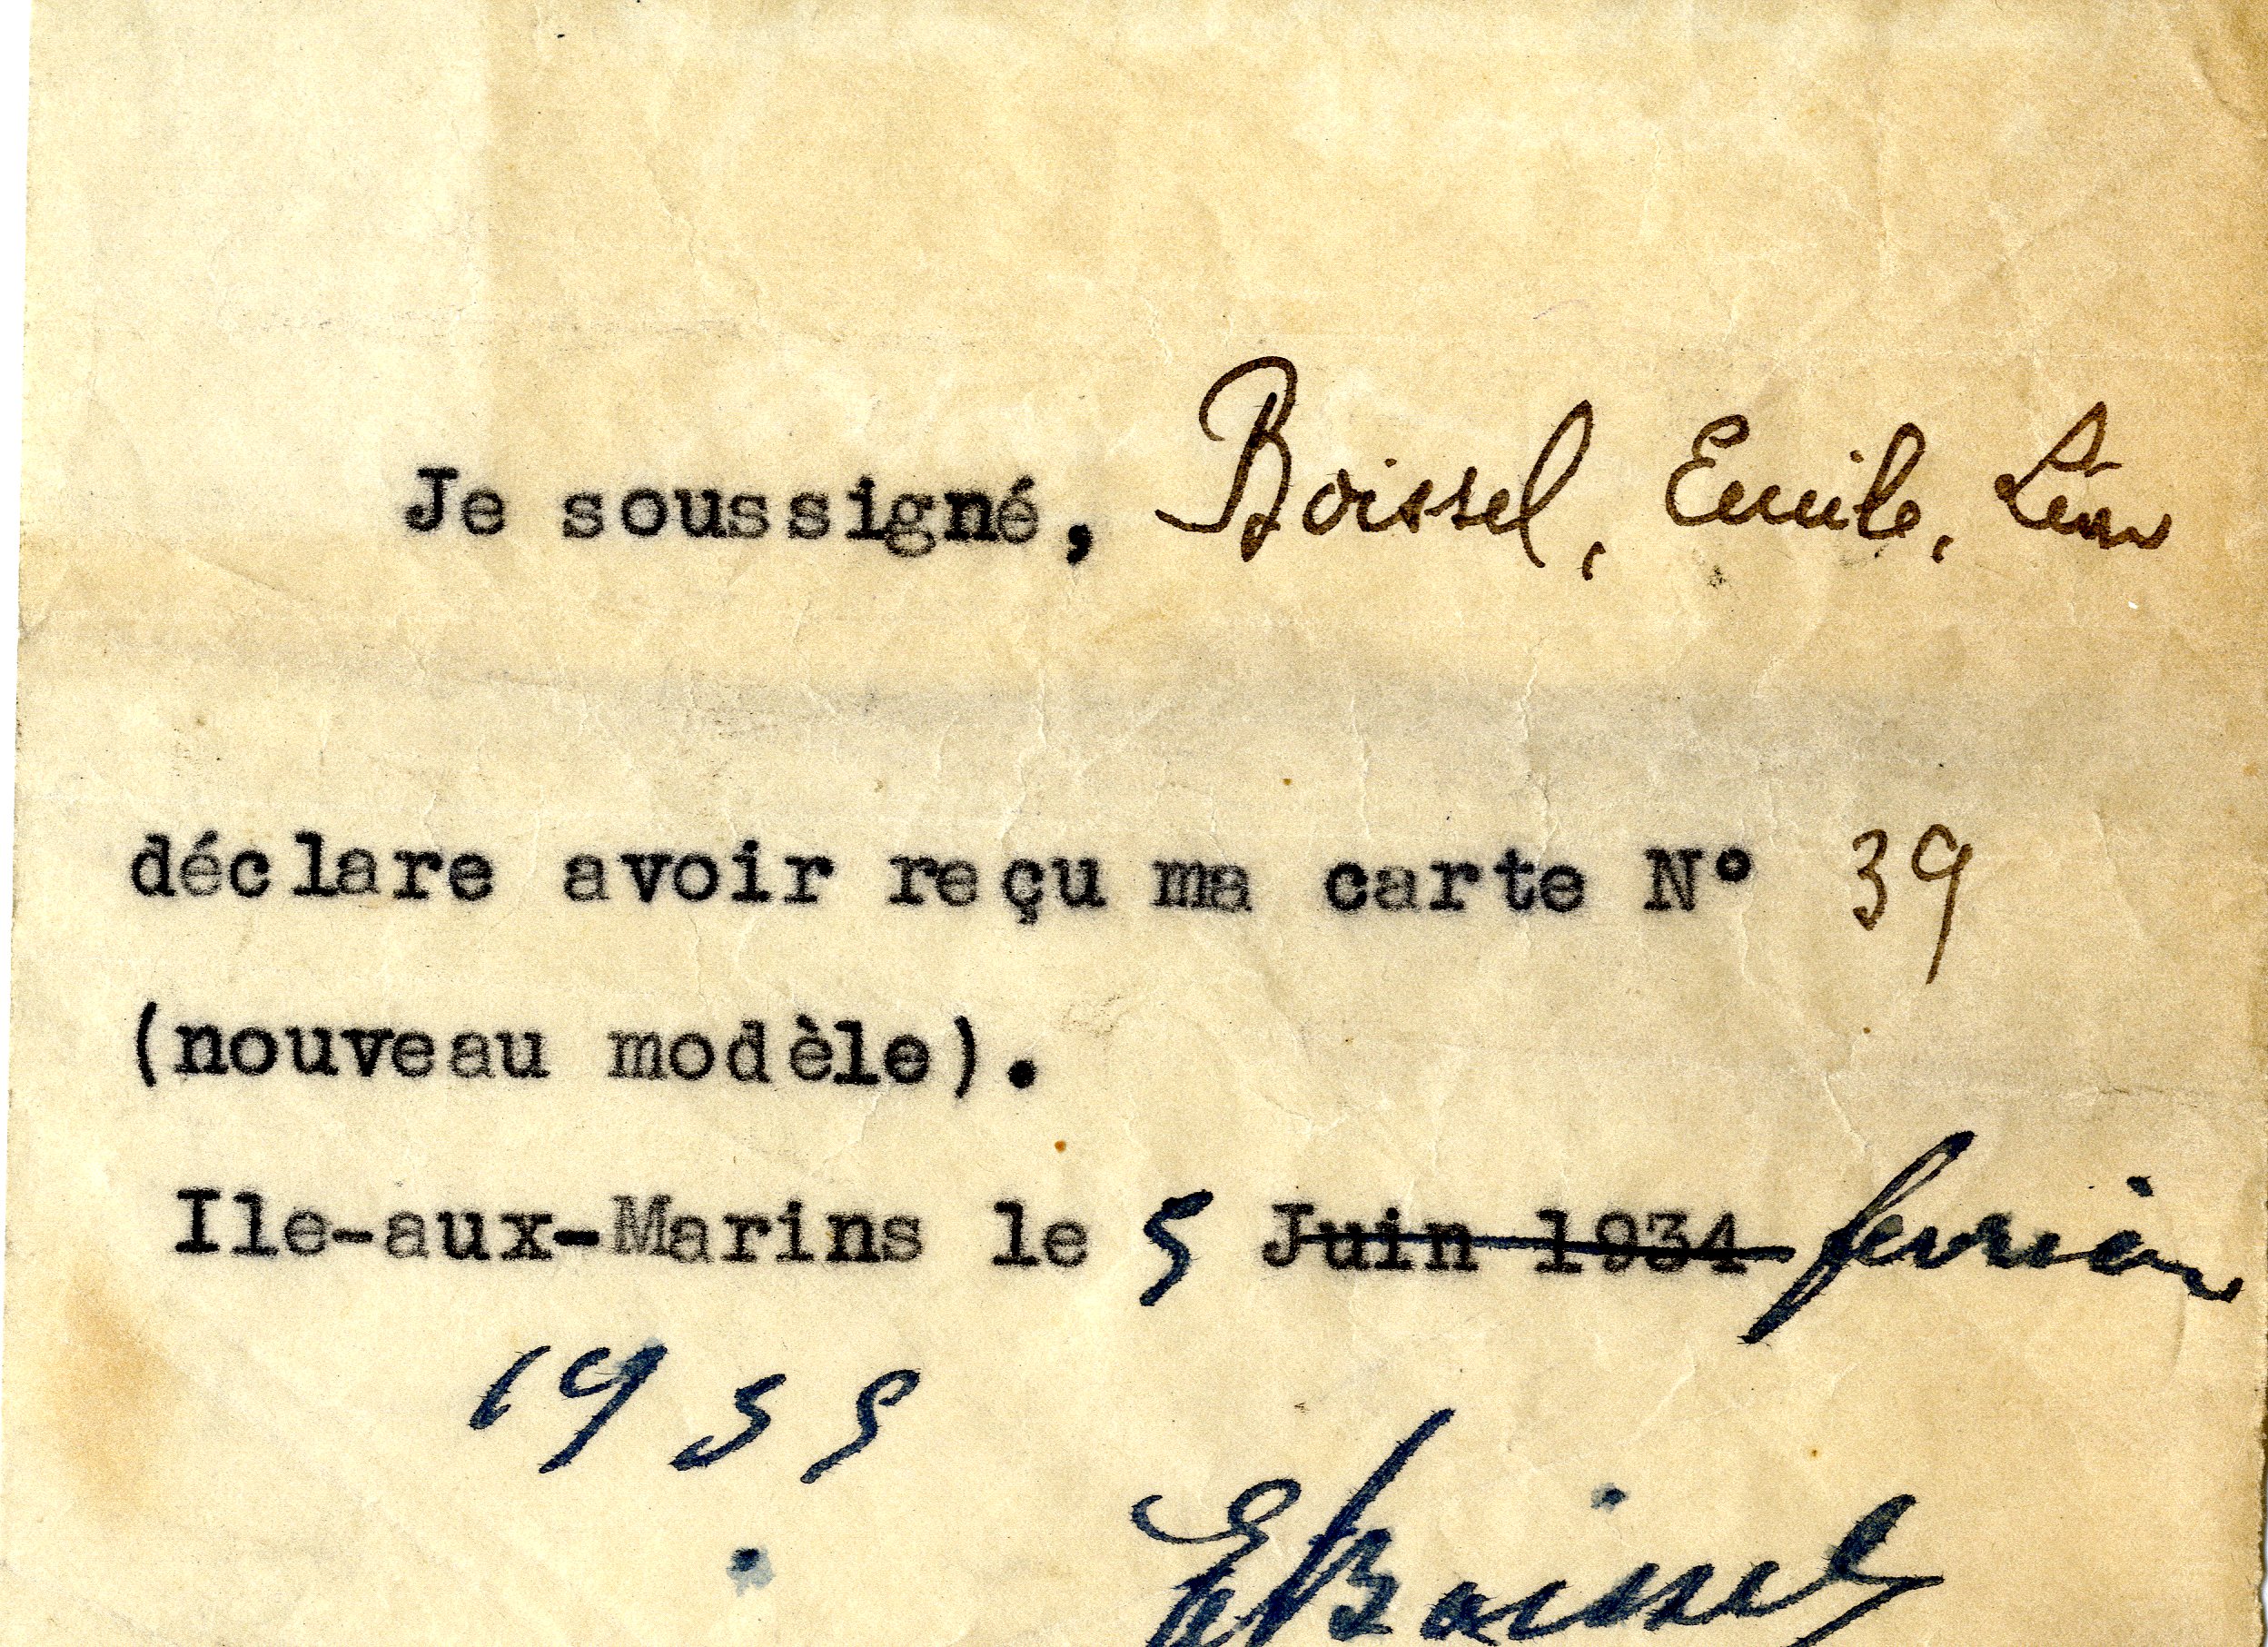 Je soussigné, Boissel, Emile, Léon
déclare avoir reçu ma carte N° 39
(nouveau modèle).
Ile-aux-Marins le 5 Juin 1934 fevrier
1935
EBoissel